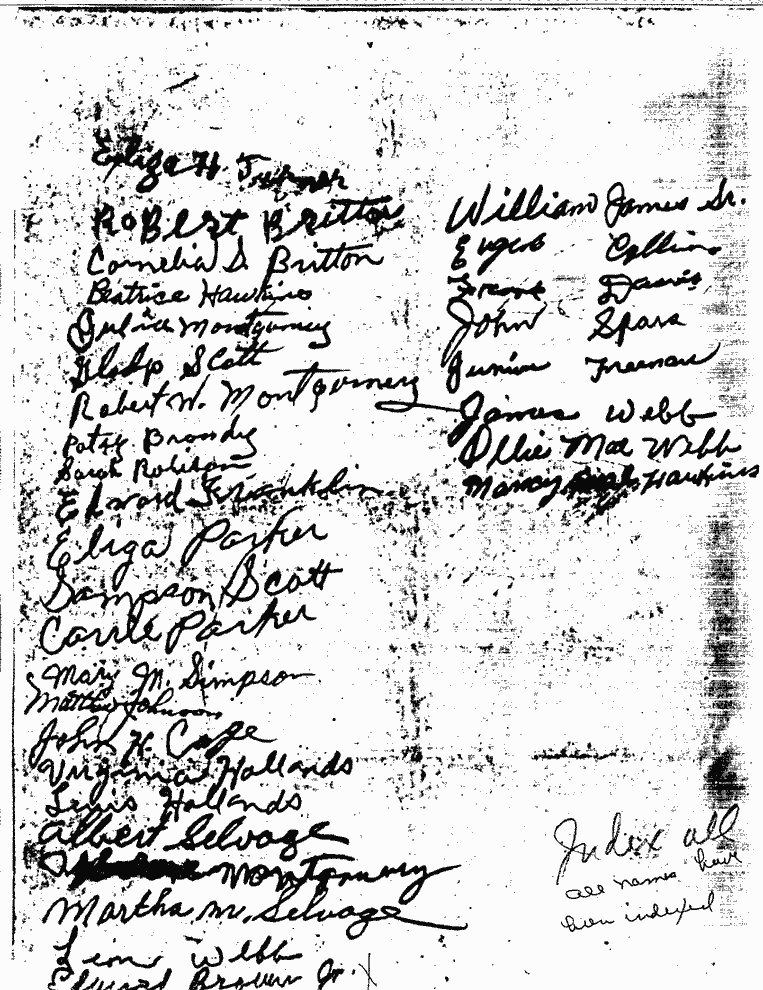 Eliza H Turner
Robert Britton
Cornelia D. Britton
Beatrice Hawkins
Julia Montgomery
Gladys Scott
Robert W. Montgomery
Patsy Brandy
Sarah Robinson
Edward Franklin
Eliza Parker
Sampson Scott
Carrie Parker
Mary M. Simpson
Matthew Johnson
John H. Cage
Virginia Hollands
Lewis Hollands
Albert Selvage
Montgomery
Martha M. Selvage
Leon Webb
Edward Brown Jr.
William James Sr.
Eugene Collins
Davis
John Spara
Junius Freeman
James Webb
Ollie Mae Webb
Mancy Hawkins
Index all
all names have
been indexed